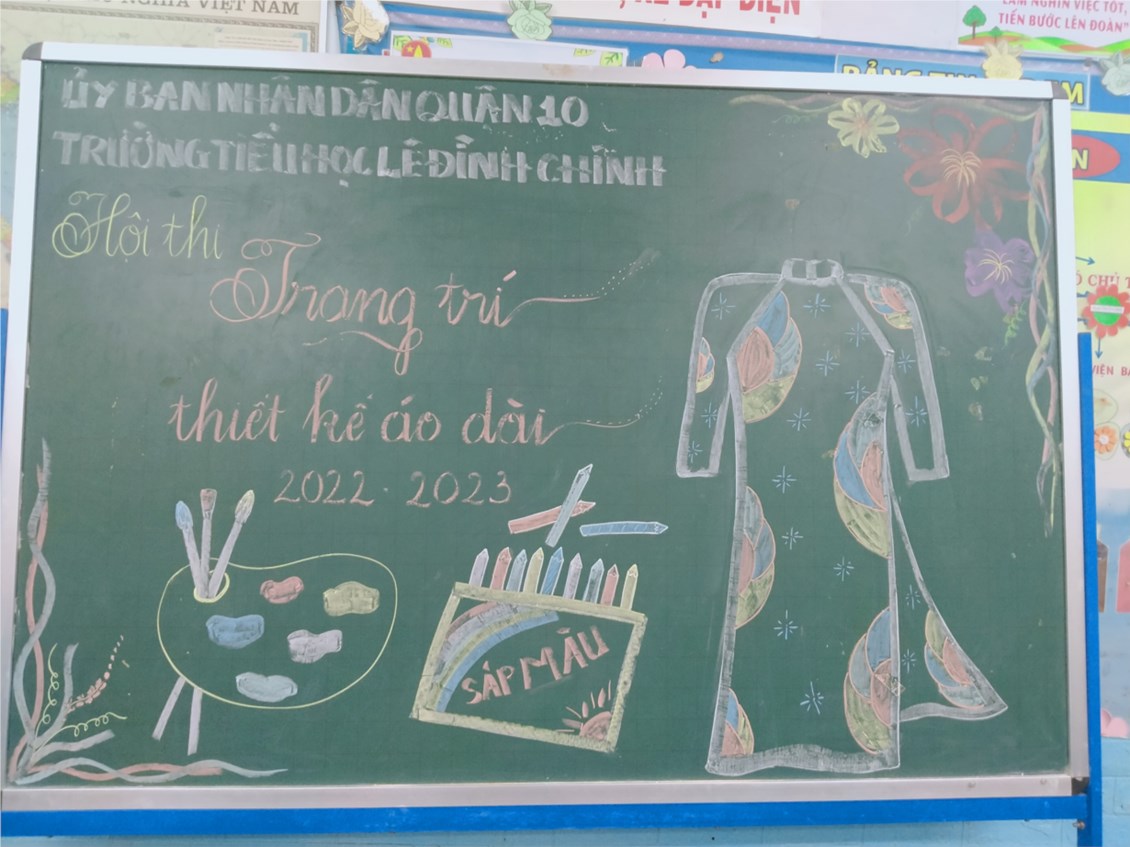 NGHĨA VIỆT NAM
ĐẠI DIỆN
LÀM NGHÌN VIỆC TỐT,
TIẾN BƯỚC LÊN ĐOÀN"
BẢNG TIN
ỦY BAN NHÂN DÂN QUẬN 10
TRƯỜNG TIỂU HỌC LÊ ĐÌNH CHINH
Hội thi
Trang trí
thiết kế áo dài
2022 - 2023
SÁP MÀU
CHỦ